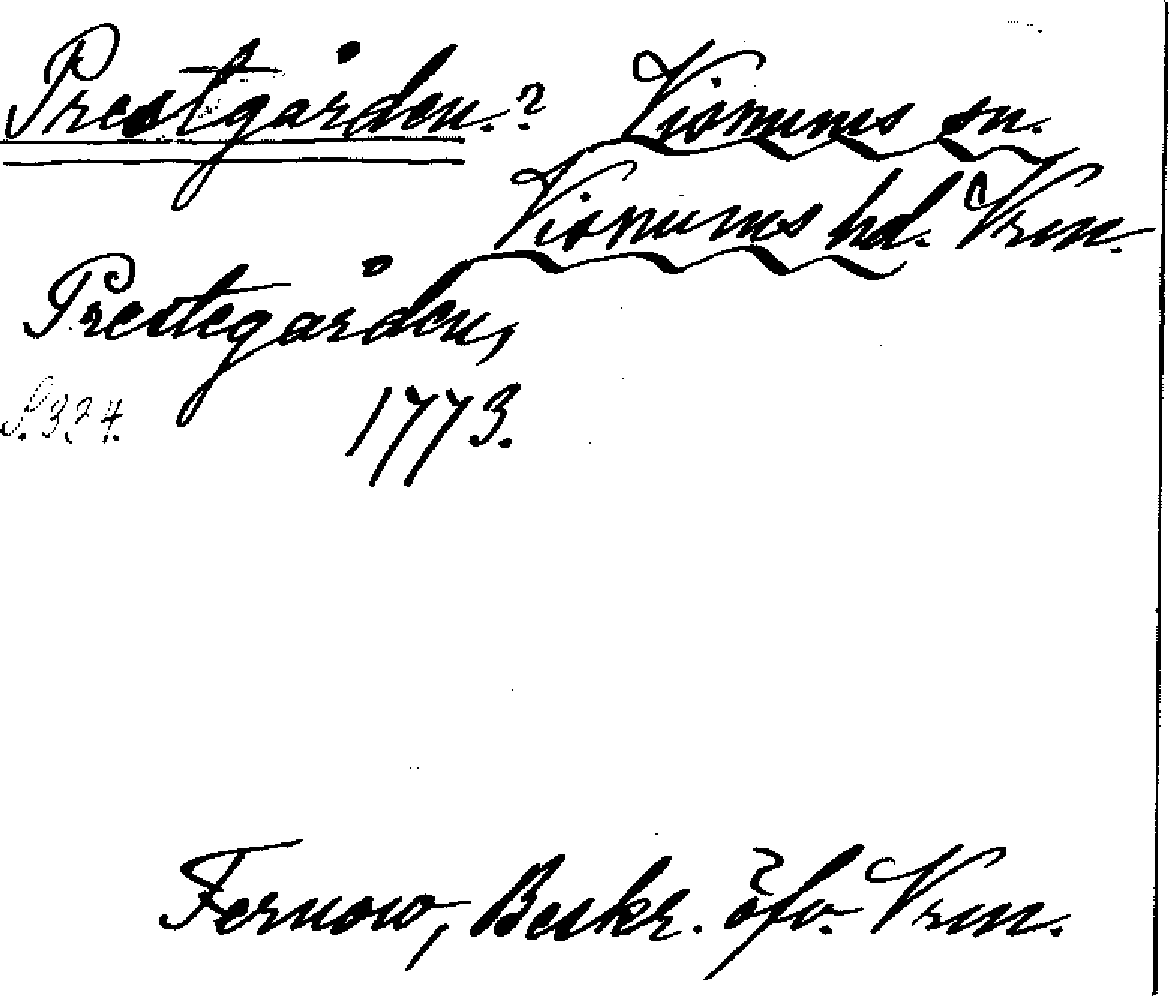 Prestgården.? Visnums sn.
Visnums hd. Vrm.
Prestegården,
S. 324. 1773.
Fernow, Beskr. öfv. Vrm.